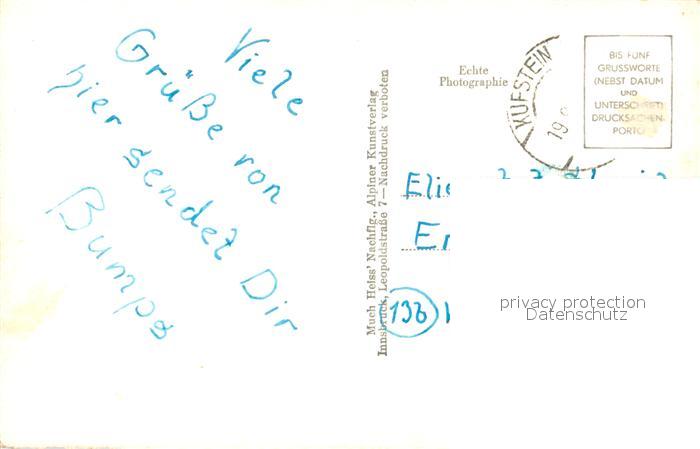 Viele
Grüße von
hier sendet Dir
Bumps
Much Heiss' Nachflg., Alpiner Kunstverlag
Innsbruck, Leopoldstraße 7 — Nachdruck verboten
Echte
Photographie
KUFSTEIN
BIS FÜNF
GRUSSWORTE
(NEBST DATUM
UND
UNTERSCHRIFT)
DRUCKSACHEN-
PORTO
privacy protection
Datenschutz